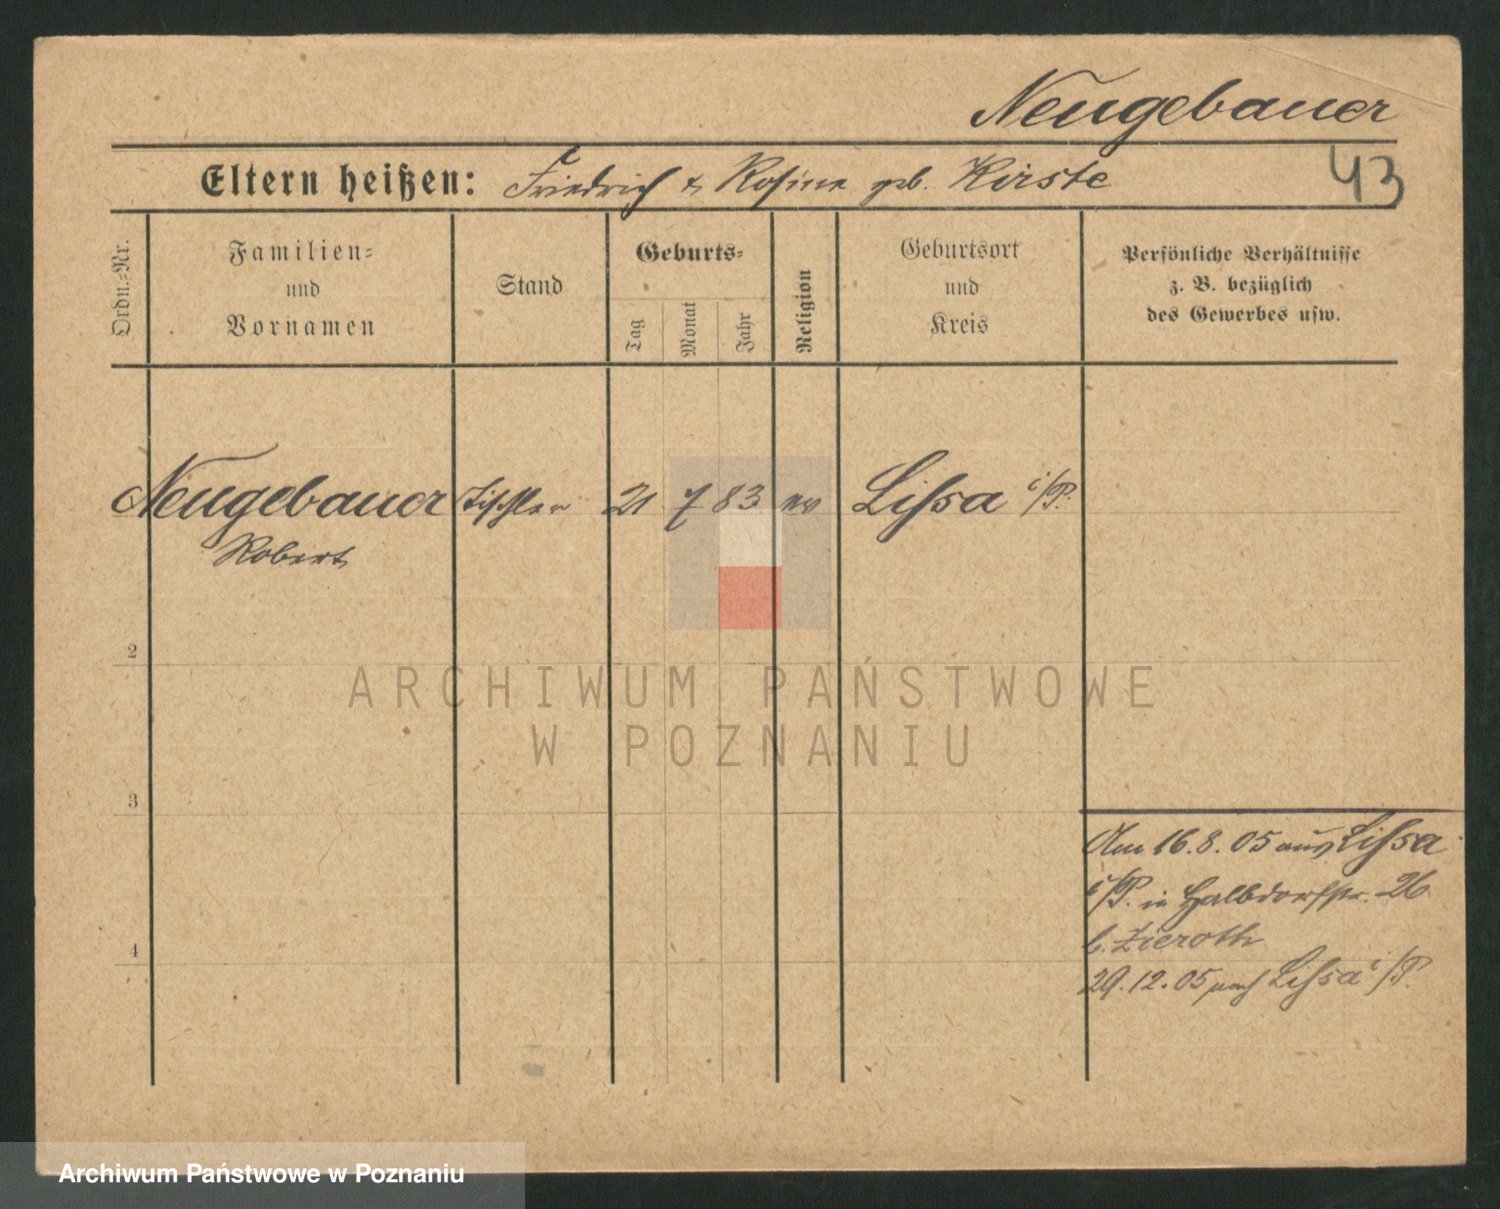 Neugebauer
43
Eltern heißen: Friedrich & Rosine geb. Kirste
Ordn.=Nr.
Familien=
und
Vornamen
Stand
Geburts=
Tag
Monat
Jahr
Religion
Geburtsort
und
Kreis
Persönliche Verhältnisse
z. B. bezüglich
des Gewerbes usw.
Neugebauer Tischler 21 7 83 ev Lissa i/P.
Robert
2
3
4
Am 16.8.05 aus Lissa
i/P. in Halbdorfstr. 26
b. Zieroth
29.12.05 nach Lissa i/P.
ARCHIWUM PAŃSTWOWE
W POZNANIU
Archiwum Państwowe w Poznaniu